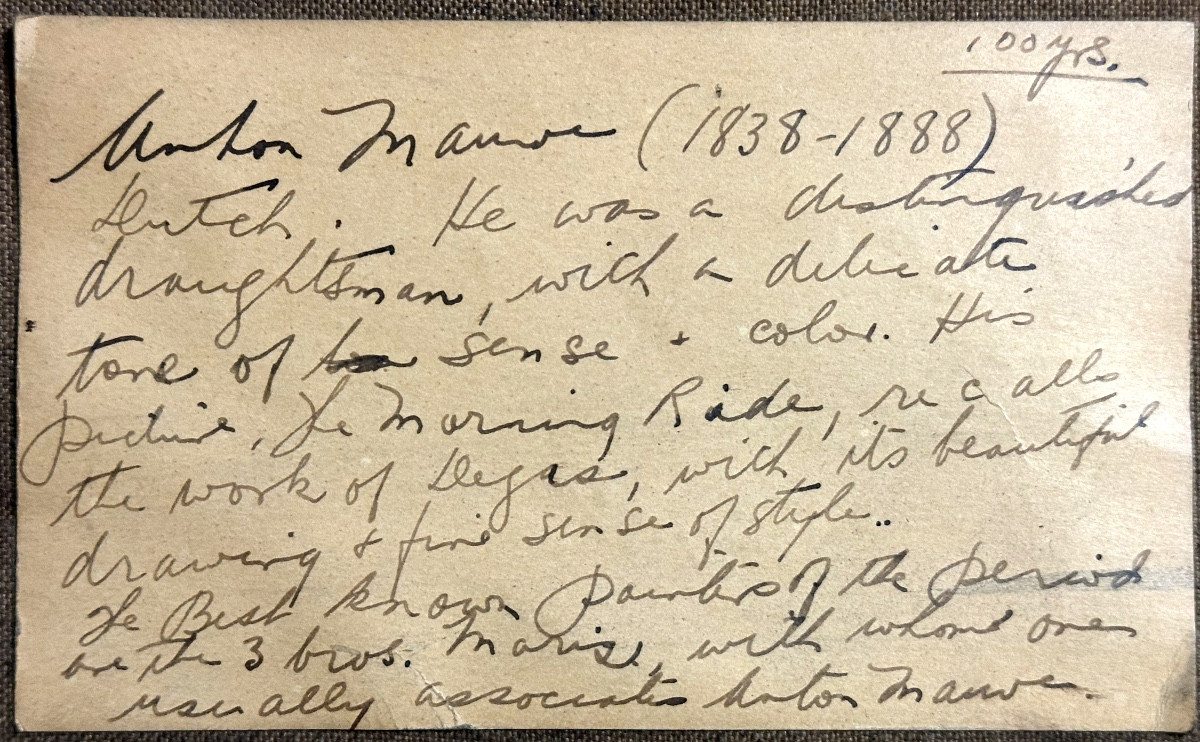 100 yrs.
Anton Mauve (1838-1888)
Dutch. He was a distinguished
draughtsman, with a delicate
tone of sense + color. His
picture, The Morning Ride, recalls
the work of Degas, with its beautiful
drawing + fine sense of style..
The Best known painters of the period
are the 3 bros. Maris, with whom one
usually associates Anton Mauve.